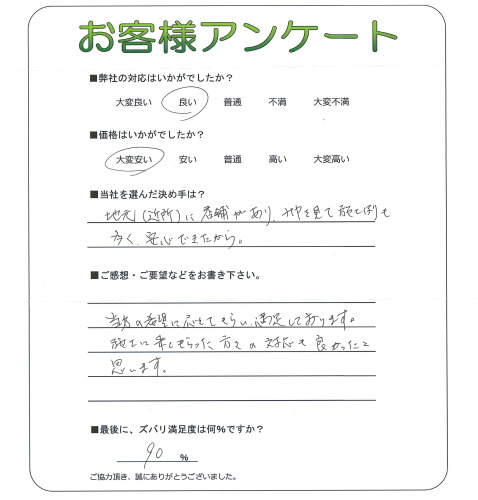 お客様アンケート
■弊社の対応はいかがでしたか？
大変良い 良い 普通 不満 大変不満
■価格はいかがでしたか？
大変安い 安い 普通 高い 大変高い
■当社を選んだ決め手は？
地元(近所)に店舗があり、HPを見て施工例も
多く、安心できたから。
■ご感想・ご要望などをお書き下さい。
当方の希望に応えてもらい、満足しております。
施工に来てもらった方々の対応も良かったと
思います。
■最後に、ズバリ満足度は何%ですか？
90 %
ご協力頂き、誠にありがとうございました。